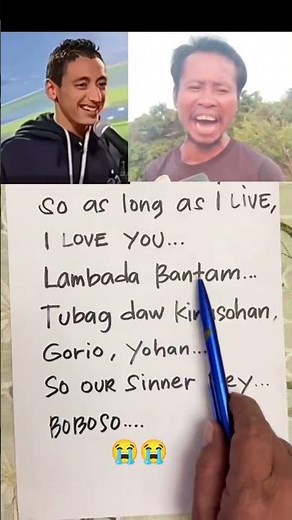 So as long as I LIVE,
I LOVE YOU...
Lambada Bantam...
Tubag daw sohan,
Gorio, Yohan...
So our Sinner
BOBOSO....
😭😭